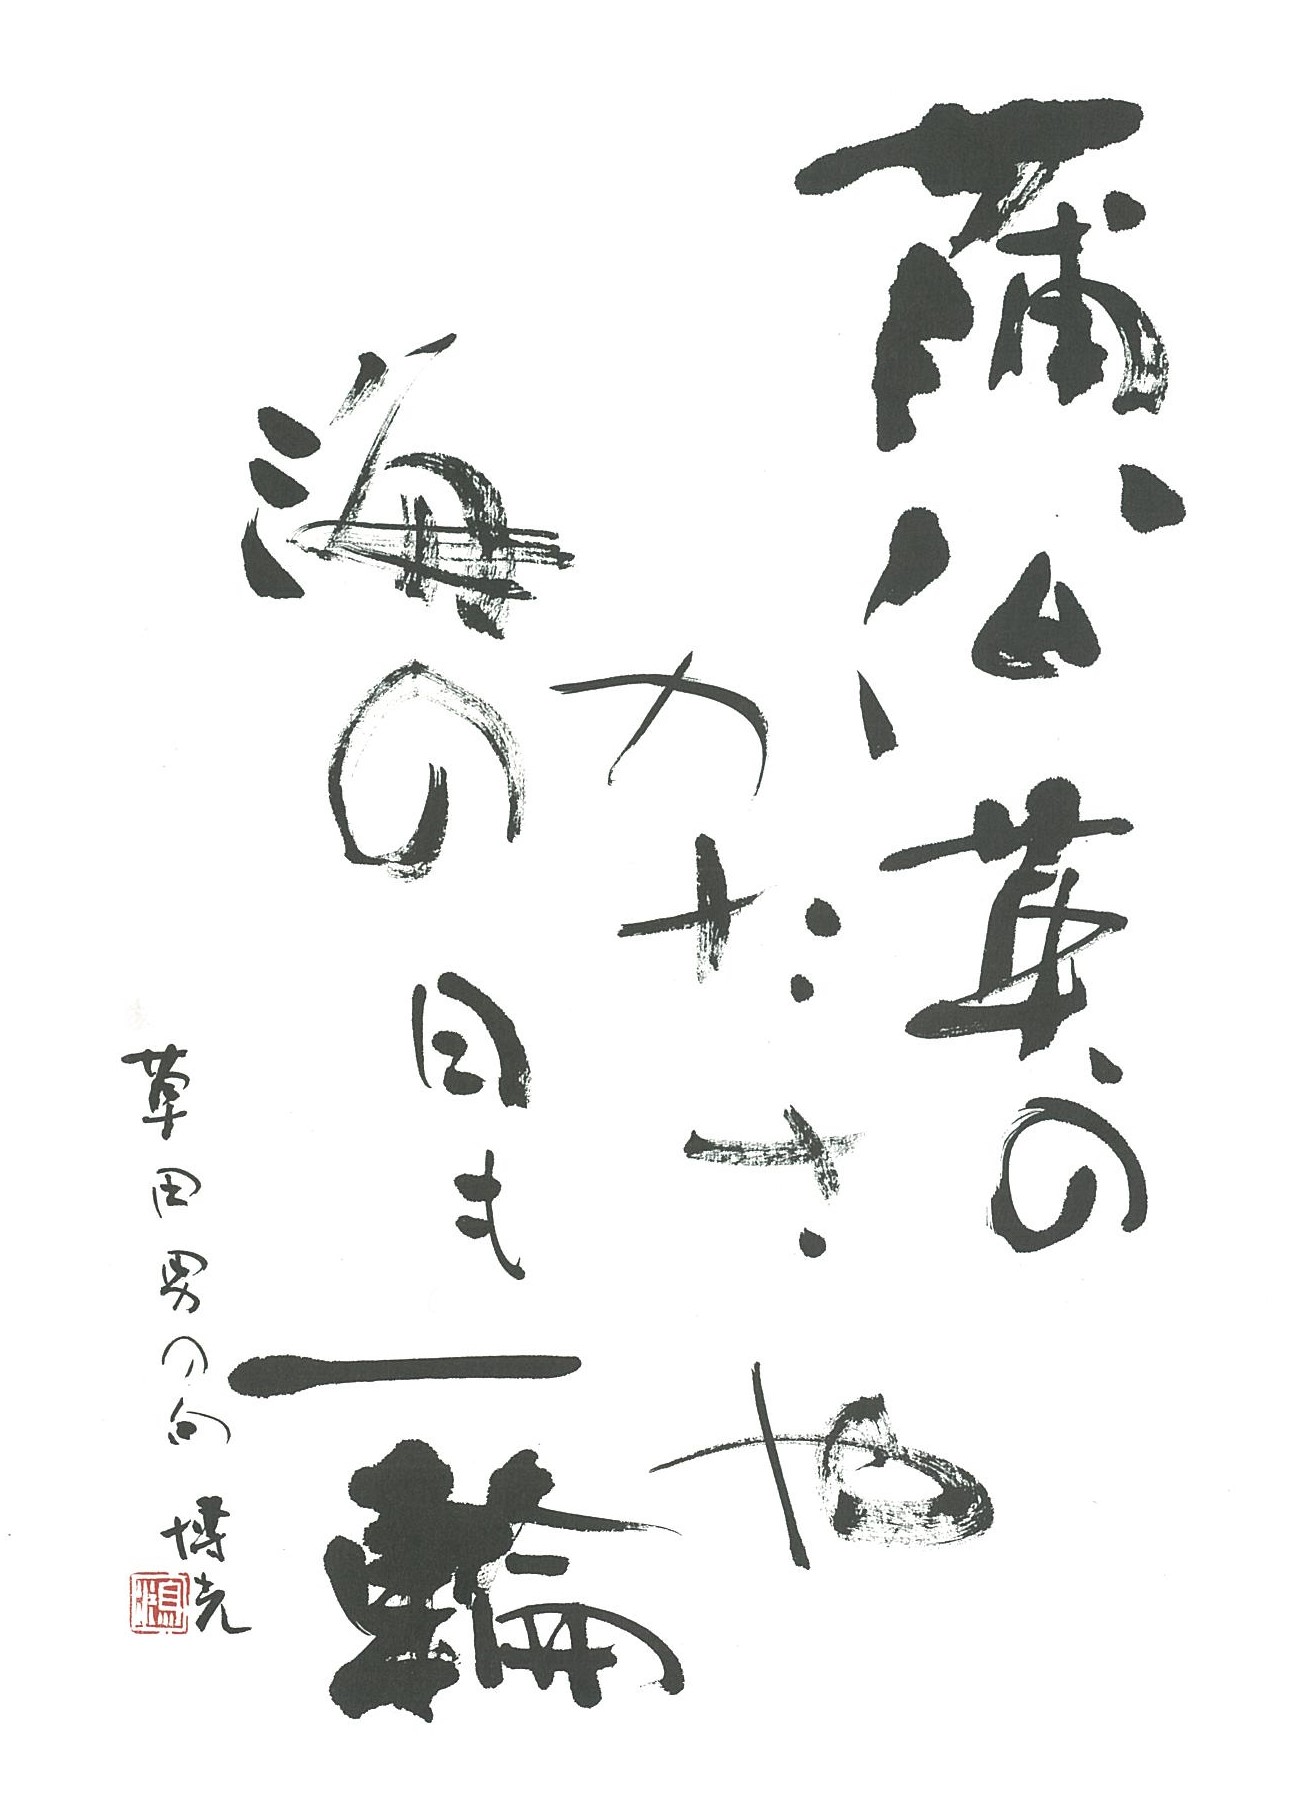 蒲公英の
かたさや
海の日も一輪
草田男の句 博